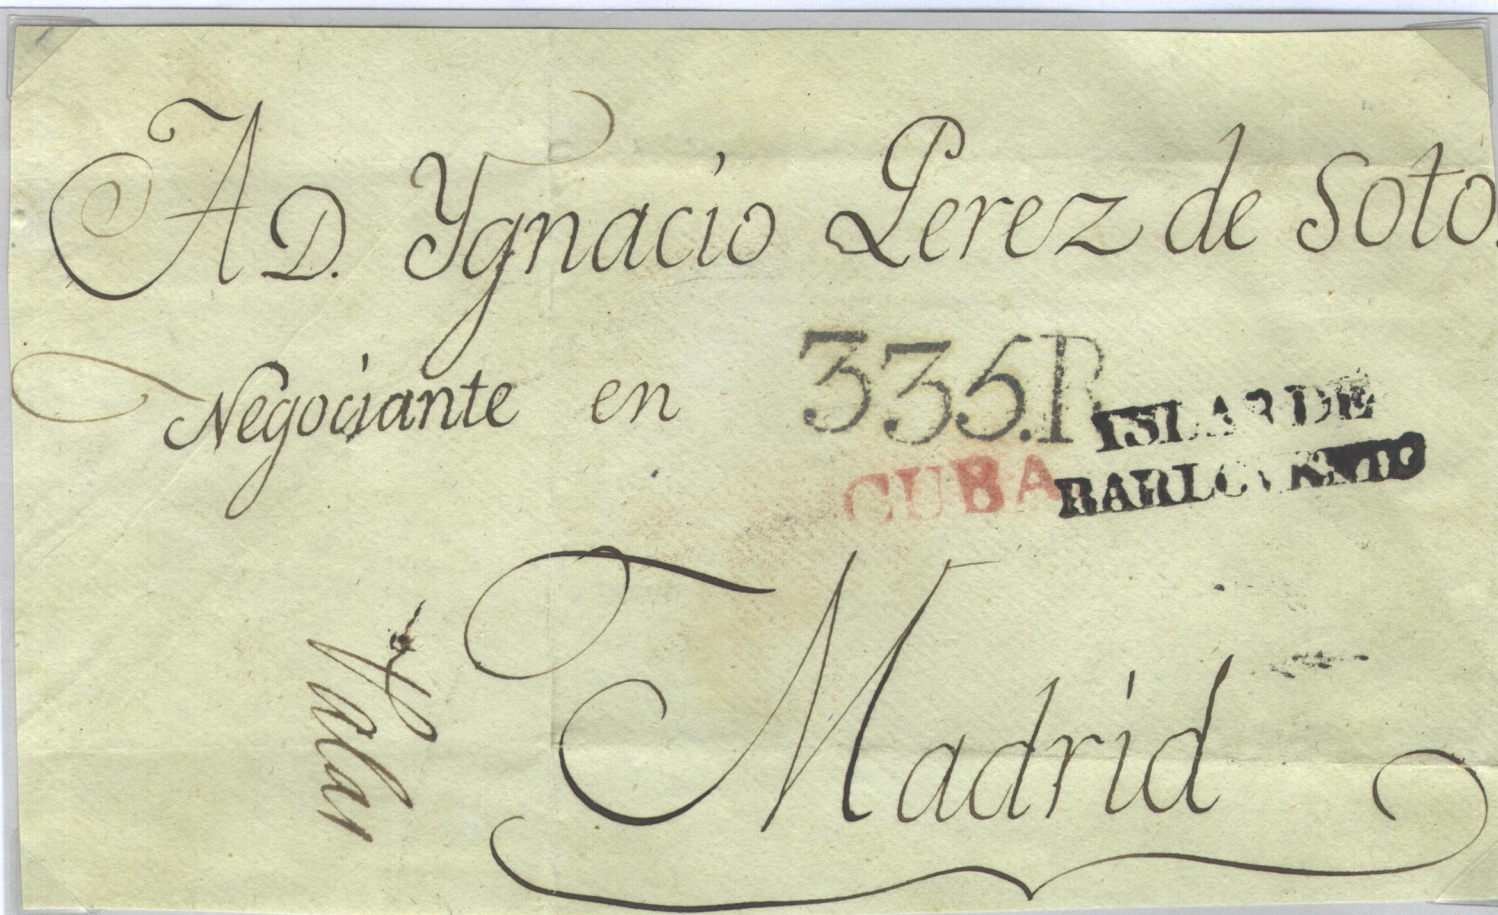 A D. Ygnacio Perez de Soto.
Negociante en
335.R
ISLAS DE
BARLOVENTO
CUBA
Madrid